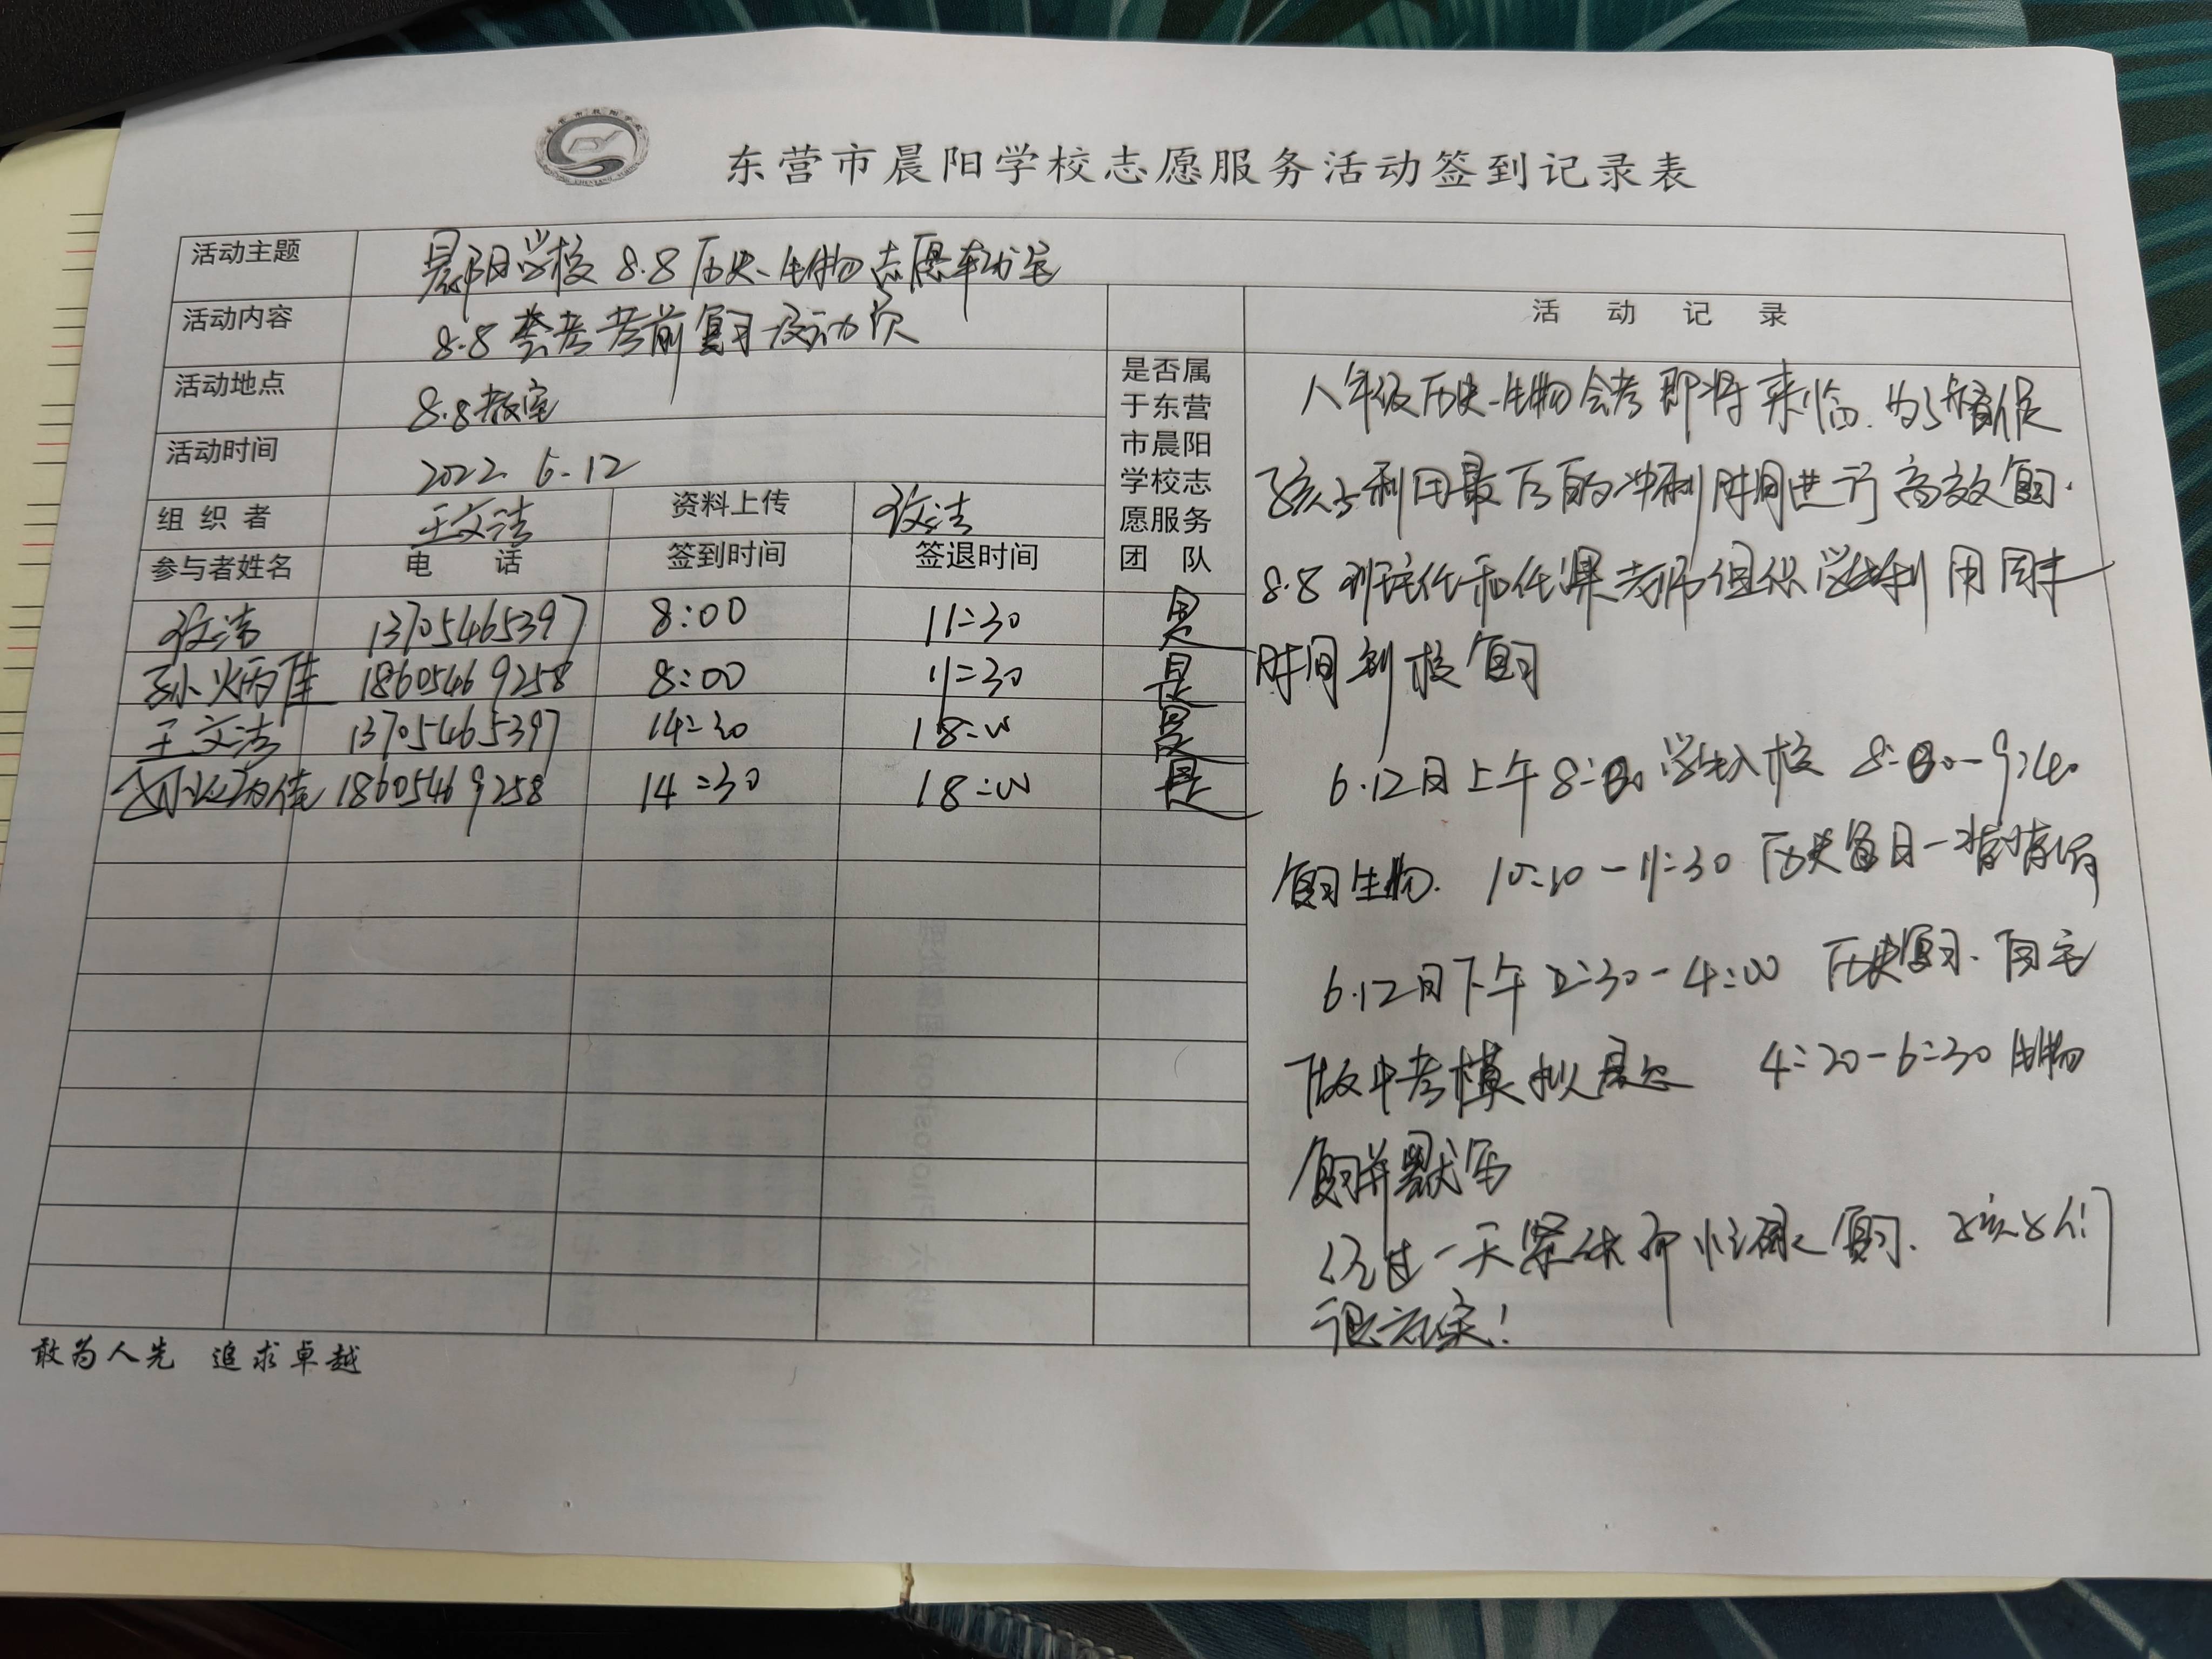 东营市晨阳学校志愿服务活动签到记录表
活动主题 晨阳学校 8.8 历史、生物志愿活动
活动内容 8.8 会考考前复习及动员
活动地点 8.8 教室
活动时间 2022. 6.12
组织者 王文洁 资料上传 文洁
参与者姓名 电话 签到时间 签退时间 是否属于东营市晨阳学校志愿服务团队
文洁 13705465397 8:00 11:30 是
孙炳佳 18605469258 8:00 11:30 是
王文洁 13705465397 14:30 18:00 是
孙炳佳 18605469258 14:30 18:00 是
活动记录
八年级历史、生物会考即将来临.为了督促
孩子利用最后的冲刺时间进行高效复习.
8.8 班主任和任课老师组织学生利用周末
时间到校复习
6.12日上午8:30学生入校 8:30-9:40
复习生物. 10:10-11:30 历史
6.12日下午2:30-4:00 历史复习、自主
做中考模拟 4:20-6:30 生物
复习并默写
经过一天紧张的复习、孩子们
很充实!
敢为人先 追求卓越